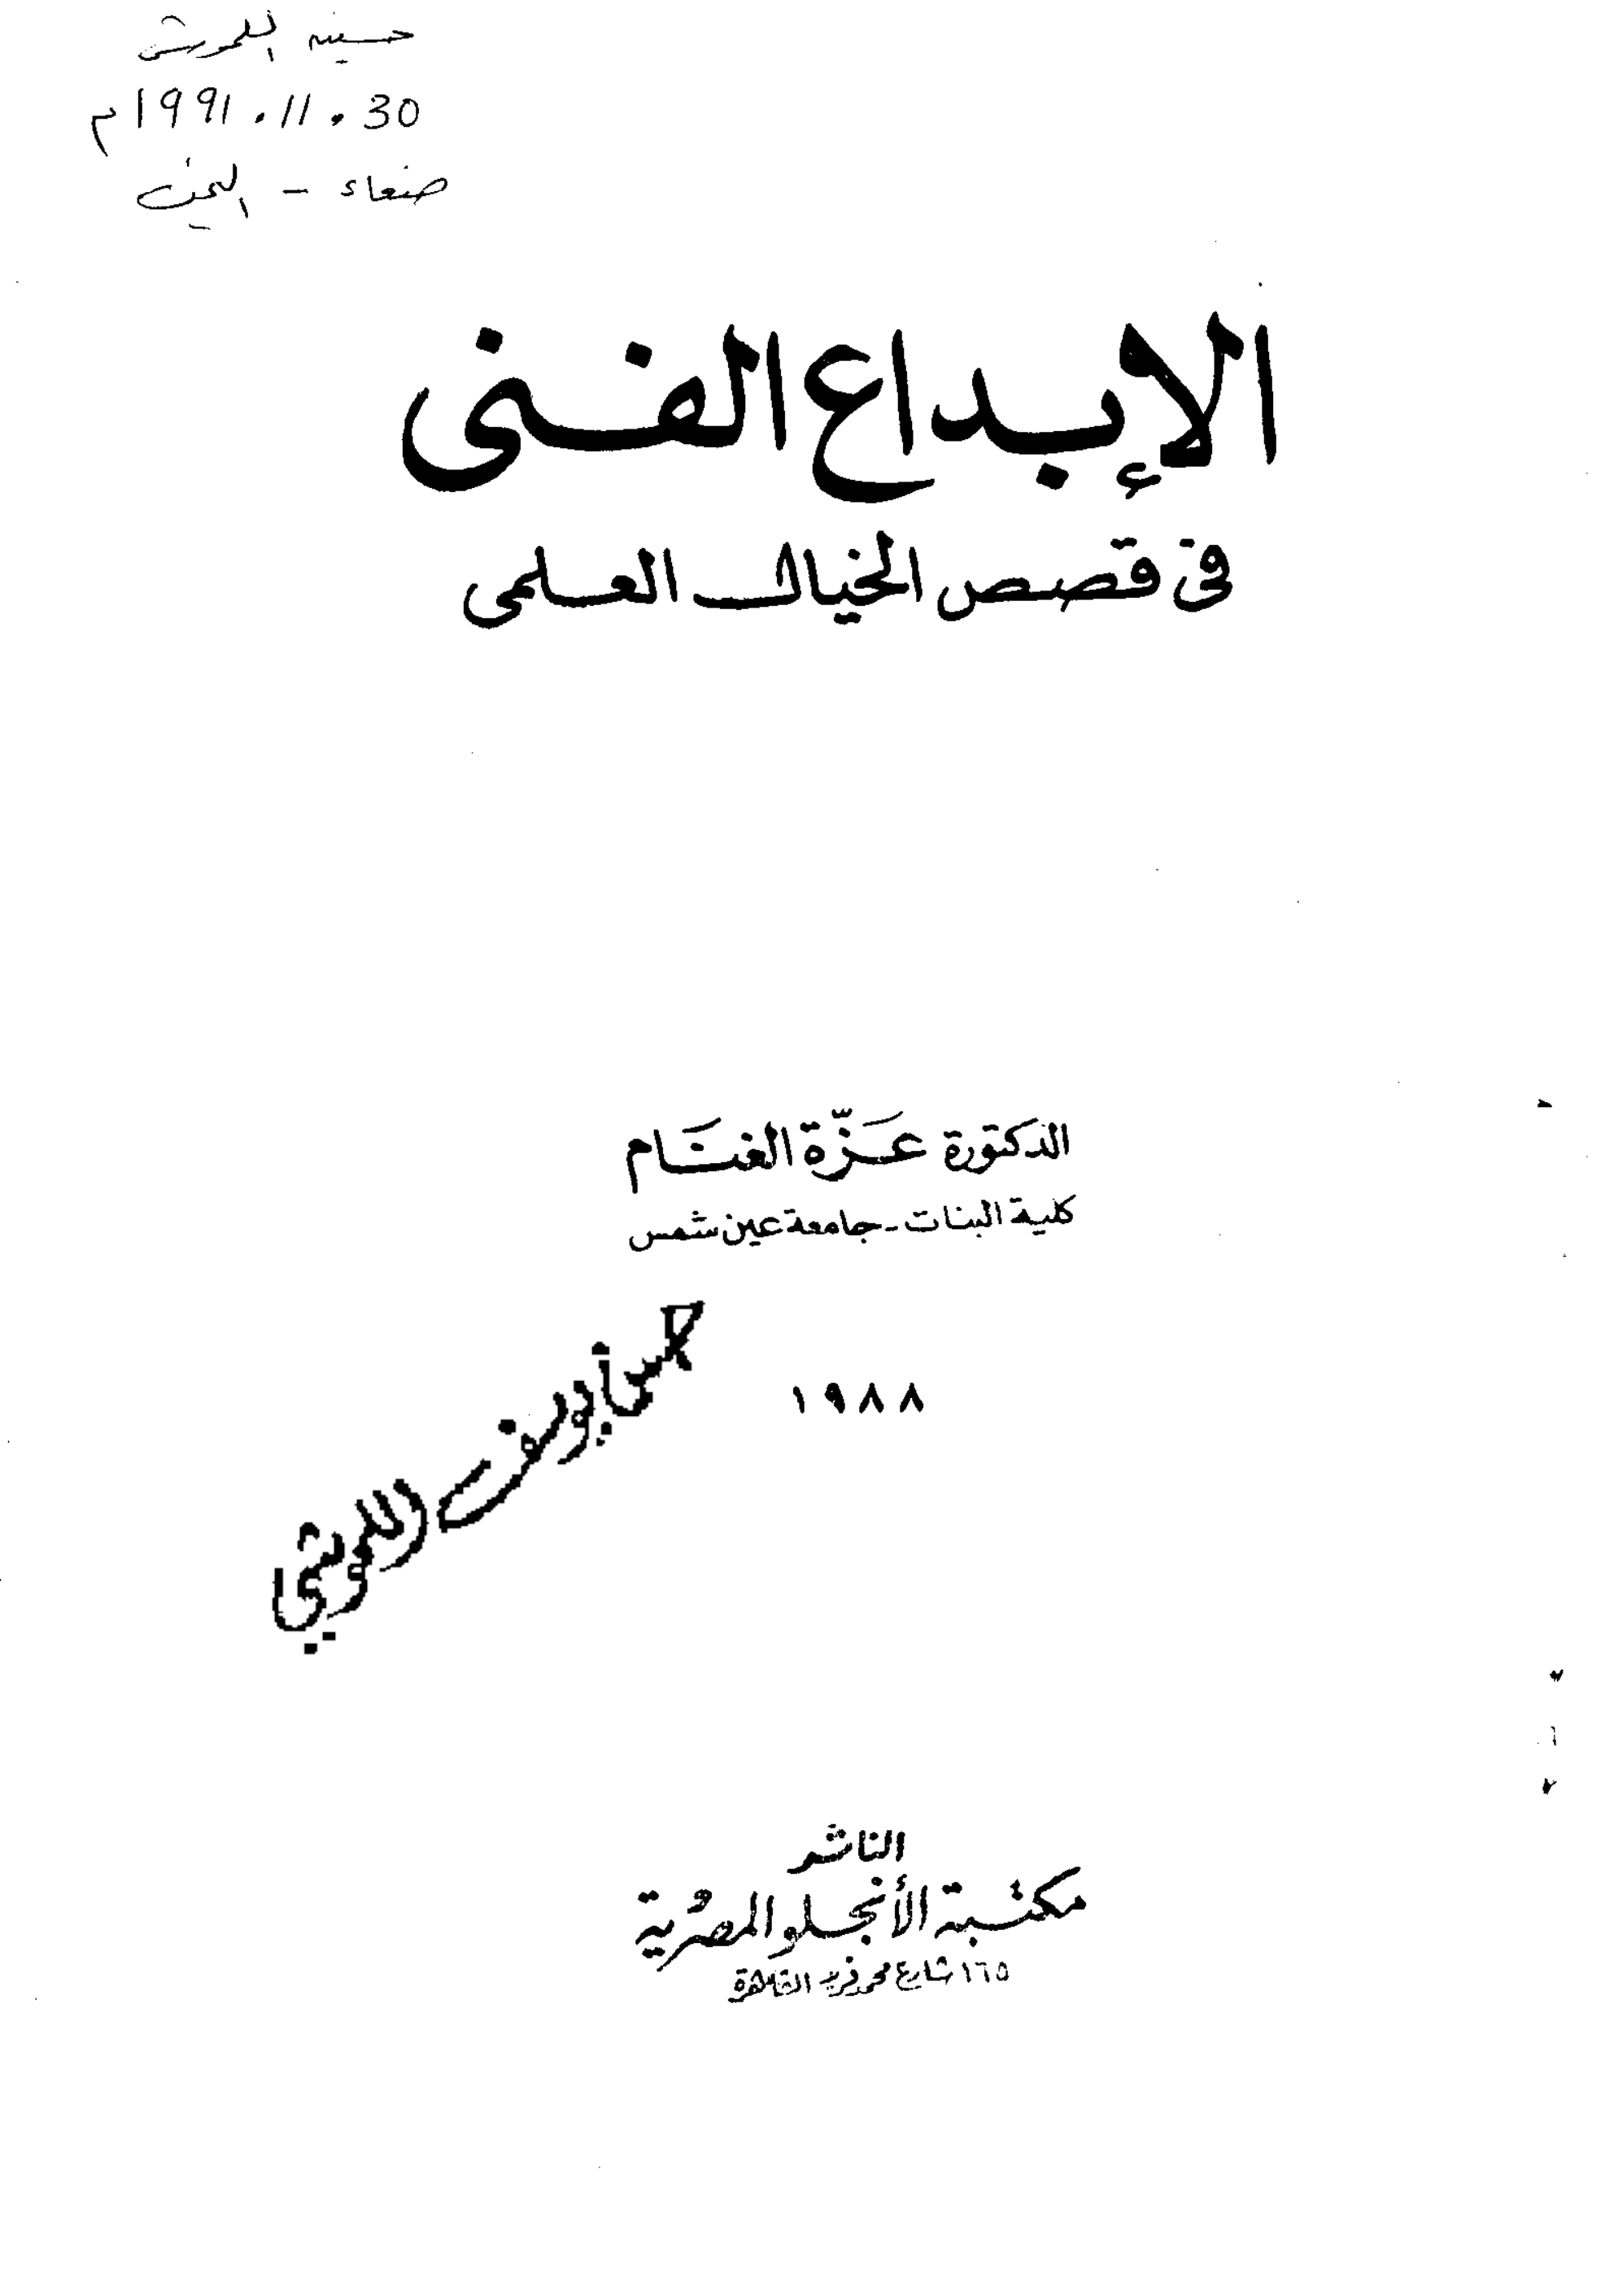 حسين
30.11.1991م
صنعاء - اليمن
الإبداع الفنى
فى قصص الخيال العلمى
الدكتورة عَزّة الغنَّام
كلية البنات - جامعة عين شمس
١٩٨٨
الناشر
مكتبة الأنجلو المصرية
١٦٥ شارع محمد فريد القاهرة